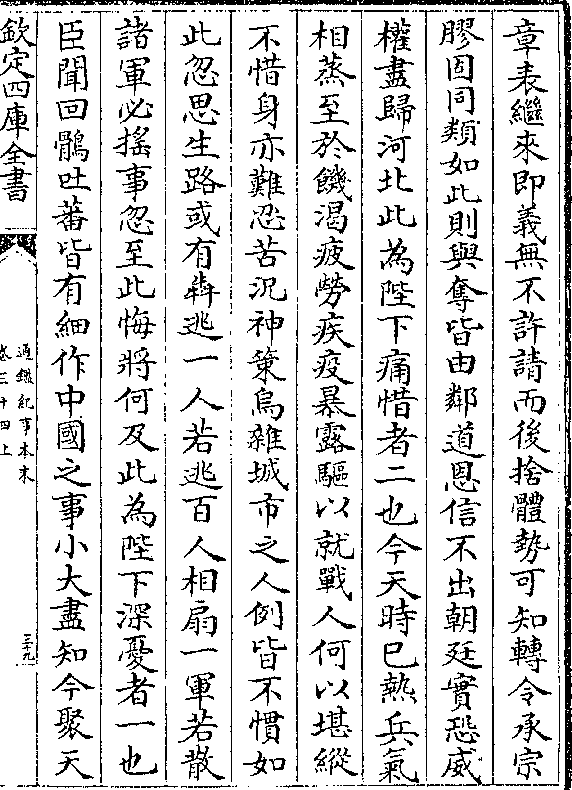 章表繼來即義無不許請而後捨體勢可知轉令承宗
膠固同類如此則與奪皆由鄰道恩信不出朝廷實恐威
權盡歸河北此為陛下痛惜者二也今天時已熱兵氣
相蒸至於饑渴疲勞疾疫暴露驅以就戰人何以堪縱
不惜身亦難忍苦況神策烏雜城市之人例皆不慣如
此忽思生路或有奔逃一人若逃百人相扇一軍若散
諸軍必搖事忽至此悔將何及此為陛下深憂者一也
臣聞回鶻吐蕃皆有細作中國之事小大盡知今聚天
欽定四庫全書
通鑑紀事本末
卷三十四上
三十九